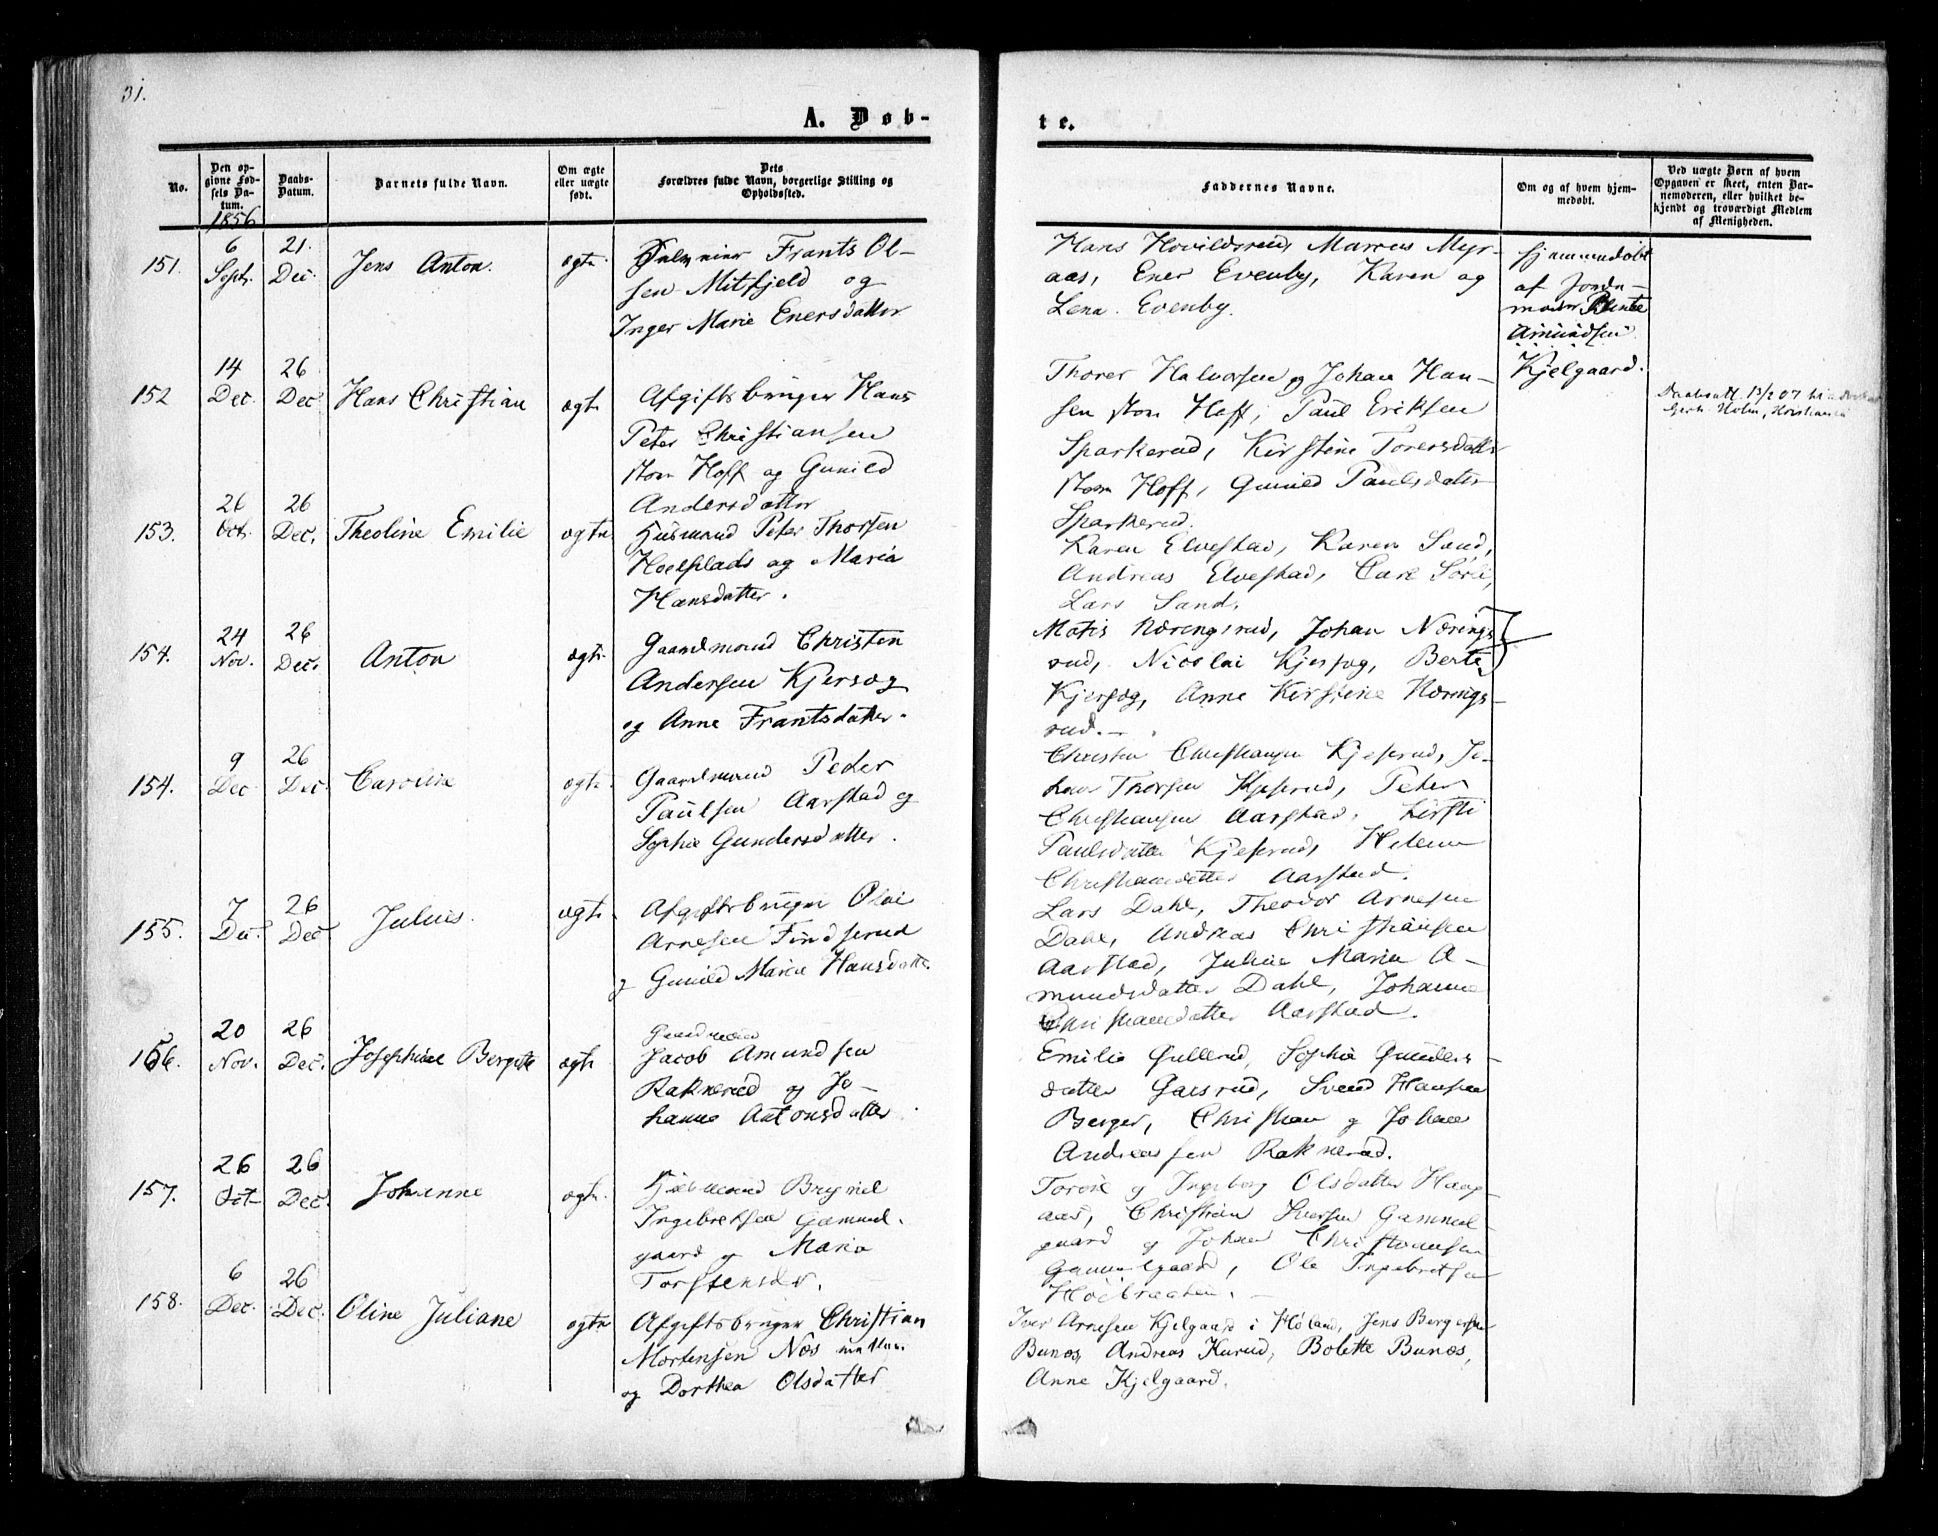 31.
A. Døb-
te.
No.
Den op-
givne Fød-
sels Da-
tum.
Daabs-
Datum.
Barnets fulde Navn.
Om ægte
eller uægte
født.
Dets
Forældres fulde Navn, borgerlige Stilling og
Opholdssted.
Faddernes Navne.
Om og af hvem hjem-
medøbt.
Ved uægte Børn af hvem
Opgaven er skeet, enten Bar-
nemoderen, eller hvilket be-
kjendt og troværdigt Medlem
af Menigheden.
1856
151.
6
Sept.
21.
Dec.
Jens Anton.
ægte
Frants Ol-
sen Mitfjeld og
Inger Marie Enersdatter
Hans Hovildsrud, Marcus Myr-
aas, Ener Evenby, Karen og
Lena Evenby.
hjemmedøbt
af Jorde-
moder Bente
Amundsen
Kjelgaard.
152
14
Dec.
26
Dec
Hans Christian
ægte
Afgiftsbruger Hans
Peter Christiansen
Hoff og Gunild
Andersdatter
Thorer Halvorsen og Johan Han-
sen Hoff, Paul Eriksen
Sparkerud, Kirstine Torersdatter
Hoff, Gunild Paulsdatter
Sparkerud.
Daabsatt. 13/2 07
Holm, Kristiania
153.
26
Oct.
26
Dec.
Theoline Emilie
ægte
Husmand Peter Thorsen
Hoelsplads og Maria
Hansdatter.
Karen Elvestad, Karen Sand,
Andreas Elvestad, Carl Sørli,
Lars Sand.
154.
24
Nov.
26
Dec.
Anton
ægte
Gaardmand Christen
Andersen Kjersøg
og Anne Frantsdatter.
Matis Næringsrud, Johan Nærings-
rud, Nicolai Kjersøg, Berte
Kjersøg, Anne Kirstine Nærings-
rud.
154.
9
Dec
26
Dec.
Caroline
ægte
Gaardmand Peder
Paulsen Aarstad og
Sophie Gundersdatter.
Christen Christiansen Kjeserud, Jo-
han Thorsen Kjeserud, Peter
Christiansen Aarstad, Kirsti
Paulsdatter Kjeserud, Helene
Christiansdatter Aarstad.
155.
7
Dec.
26
Dec.
Julius.
ægte
Afgiftsbruger Olai
Arnesen Findserud
og Gunild Marie Hansdatter.
Lars Dahl, Theodor Arnesen
Dahl, Andreas Christiansen
Aarstad, Julie Marie A-
mundsdatter Dahl, Johanne
Christiansdatter Aarstad.
156.
20
Nov.
26
Dec.
Josephine Bergete
ægte
Gaardmand
Jacob Amundsen
Raknerud og Jo-
hanne Antonsdatter.
Emilie Gullerud, Sophie Gunders-
datter Garsrud, Svend Hansen
Berger, Christian og Johan
Andreassen Raknerud.
157.
26
Oct
26
Dec.
Johanne
ægte
Husmand Brynild
Ingebretsen Gammel-
gaard og Maria
Torstensdr.
og Ingeborg Olsdatter Haag-
aas, Christian Iversen Gammel-
gaard og Johan Christiansen
Gammelgaard, Ole Ingebretsen
Høebraaten.
158.
6
Dec.
26
Dec.
Oline Juliane
ægte
Afgiftsbruger Christian
Mortensen Næs
og Dorthea Olsdatter
Iver Arnesen Kjelgaard i Høland, Jens Bergersen
Bunæs, Andreas Kurud, Bolette Bunæs,
Anne Kjelgaard.